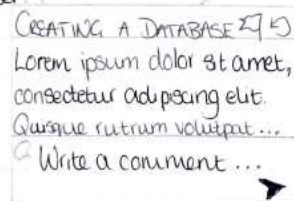 CREATING A DATABASE
Lorem ipsum dolor st amet,
consectetur adipiscing elit.
Quisque rutrum volutpat ...
Write a comment ...